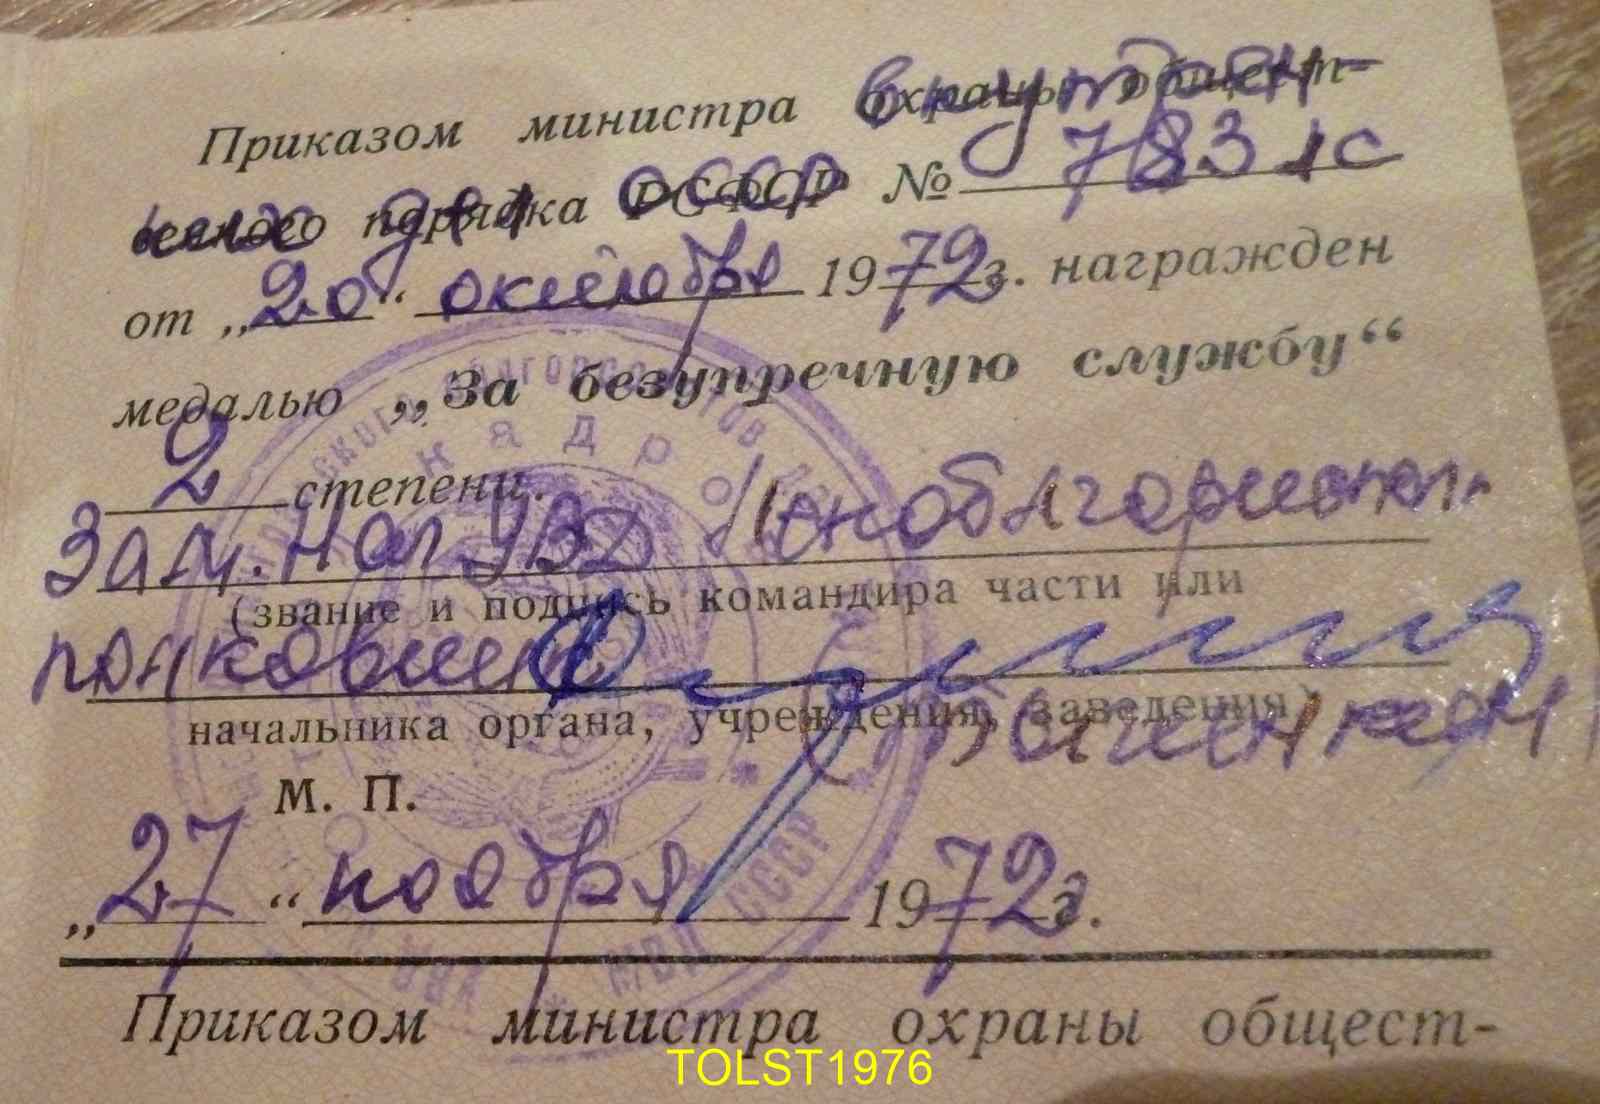 Приказом министра охраны общест- внутрен-
венного порядка РСФСР них дел СССР № 783 лс
от „20“ октября 1972 г. награжден
медалью „За безупречную службу“
2 степени.
Зам. Нач УВД Леноблгорисполк.
(звание и подпись командира части или
полковник
начальника органа, учреждения, заведения)
М. П.
„27“ ноября 1972 г.
Приказом министра охраны общест-
TOLST1976